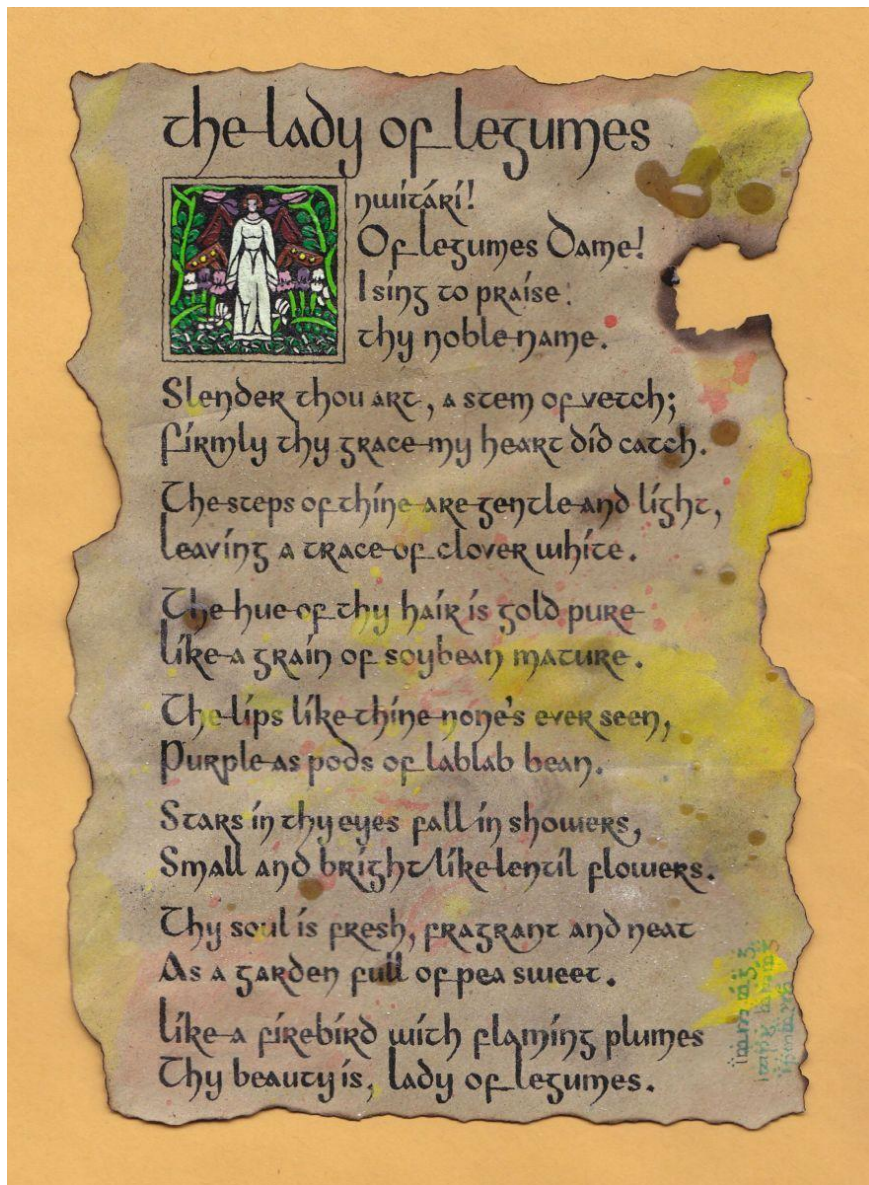 the lady of legumes
nwitári!
Of legumes Dame!
I sing to praise
thy noble name.
Slender thou art, a stem of vetch;
Firmly thy grace my heart did catch.
The steps of thine are gentle and light,
Leaving a trace of clover white.
The hue of thy hair is gold pure
Like a grain of soybean mature.
The lips like thine none's ever seen,
Purple as pods of lablab bean.
Stars in thy eyes fall in showers,
Small and bright like lentil flowers.
Thy soul is fresh, fragrant and neat
As a garden full of pea sweet.
Like a firebird with flaming plumes
Thy beauty is, lady of legumes.